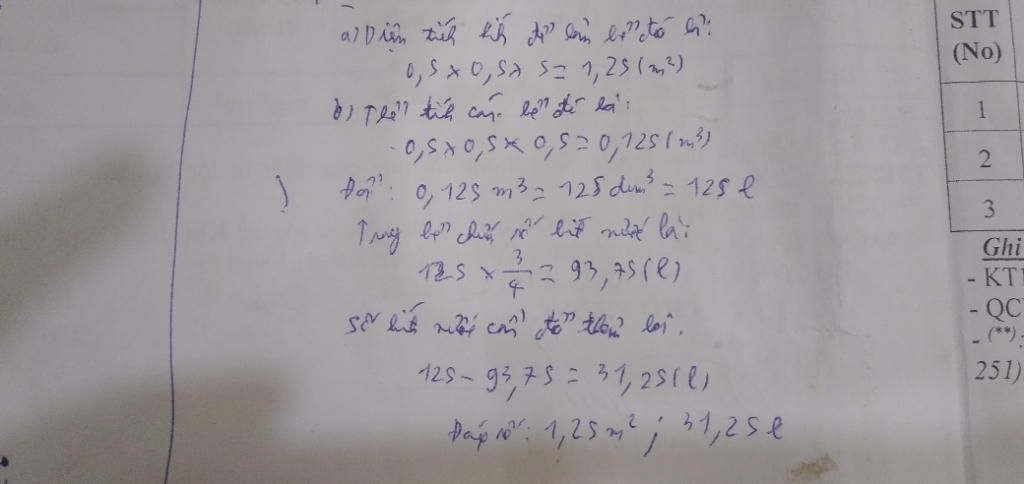 a) Diện tích kính để làm bể đó là:
0,5 × 0,5 × 5 = 1,25 (m²)
b) Thể tích của bể đó là:
0,5 × 0,5 × 0,5 = 0,125 (m³)
Đổi: 0,125 m³ = 125 dm³ = 125 l
Trong bể chứa số lít nước là:
125 × 3/4 = 93,75 (l)
Số lít nước cần đổ thêm là:
125 - 93,75 = 31,25 (l)
Đáp số: 1,25 m² ; 31,25 l
STT
(No)
1
2
3
Ghi
- KT1
- QC
- (**):
251)